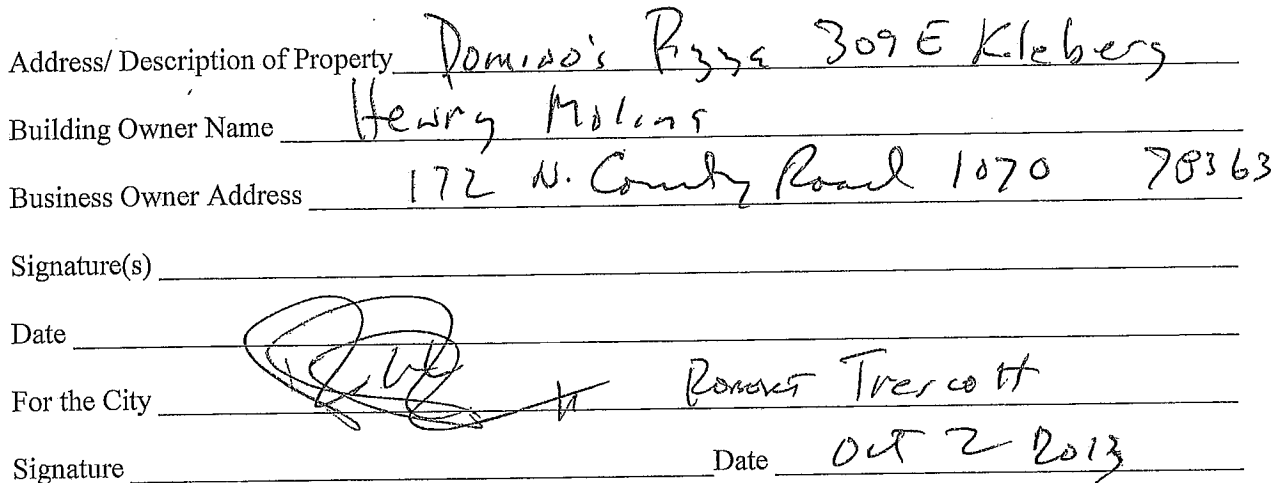 Address/ Description of Property Domino's Pizza 309 E Kleberg
Building Owner Name Henry Molina
Business Owner Address 172 N. County Road 1070 78363
Signature(s)
Date
For the City Robert Trescott
Signature Date Oct 2 2013